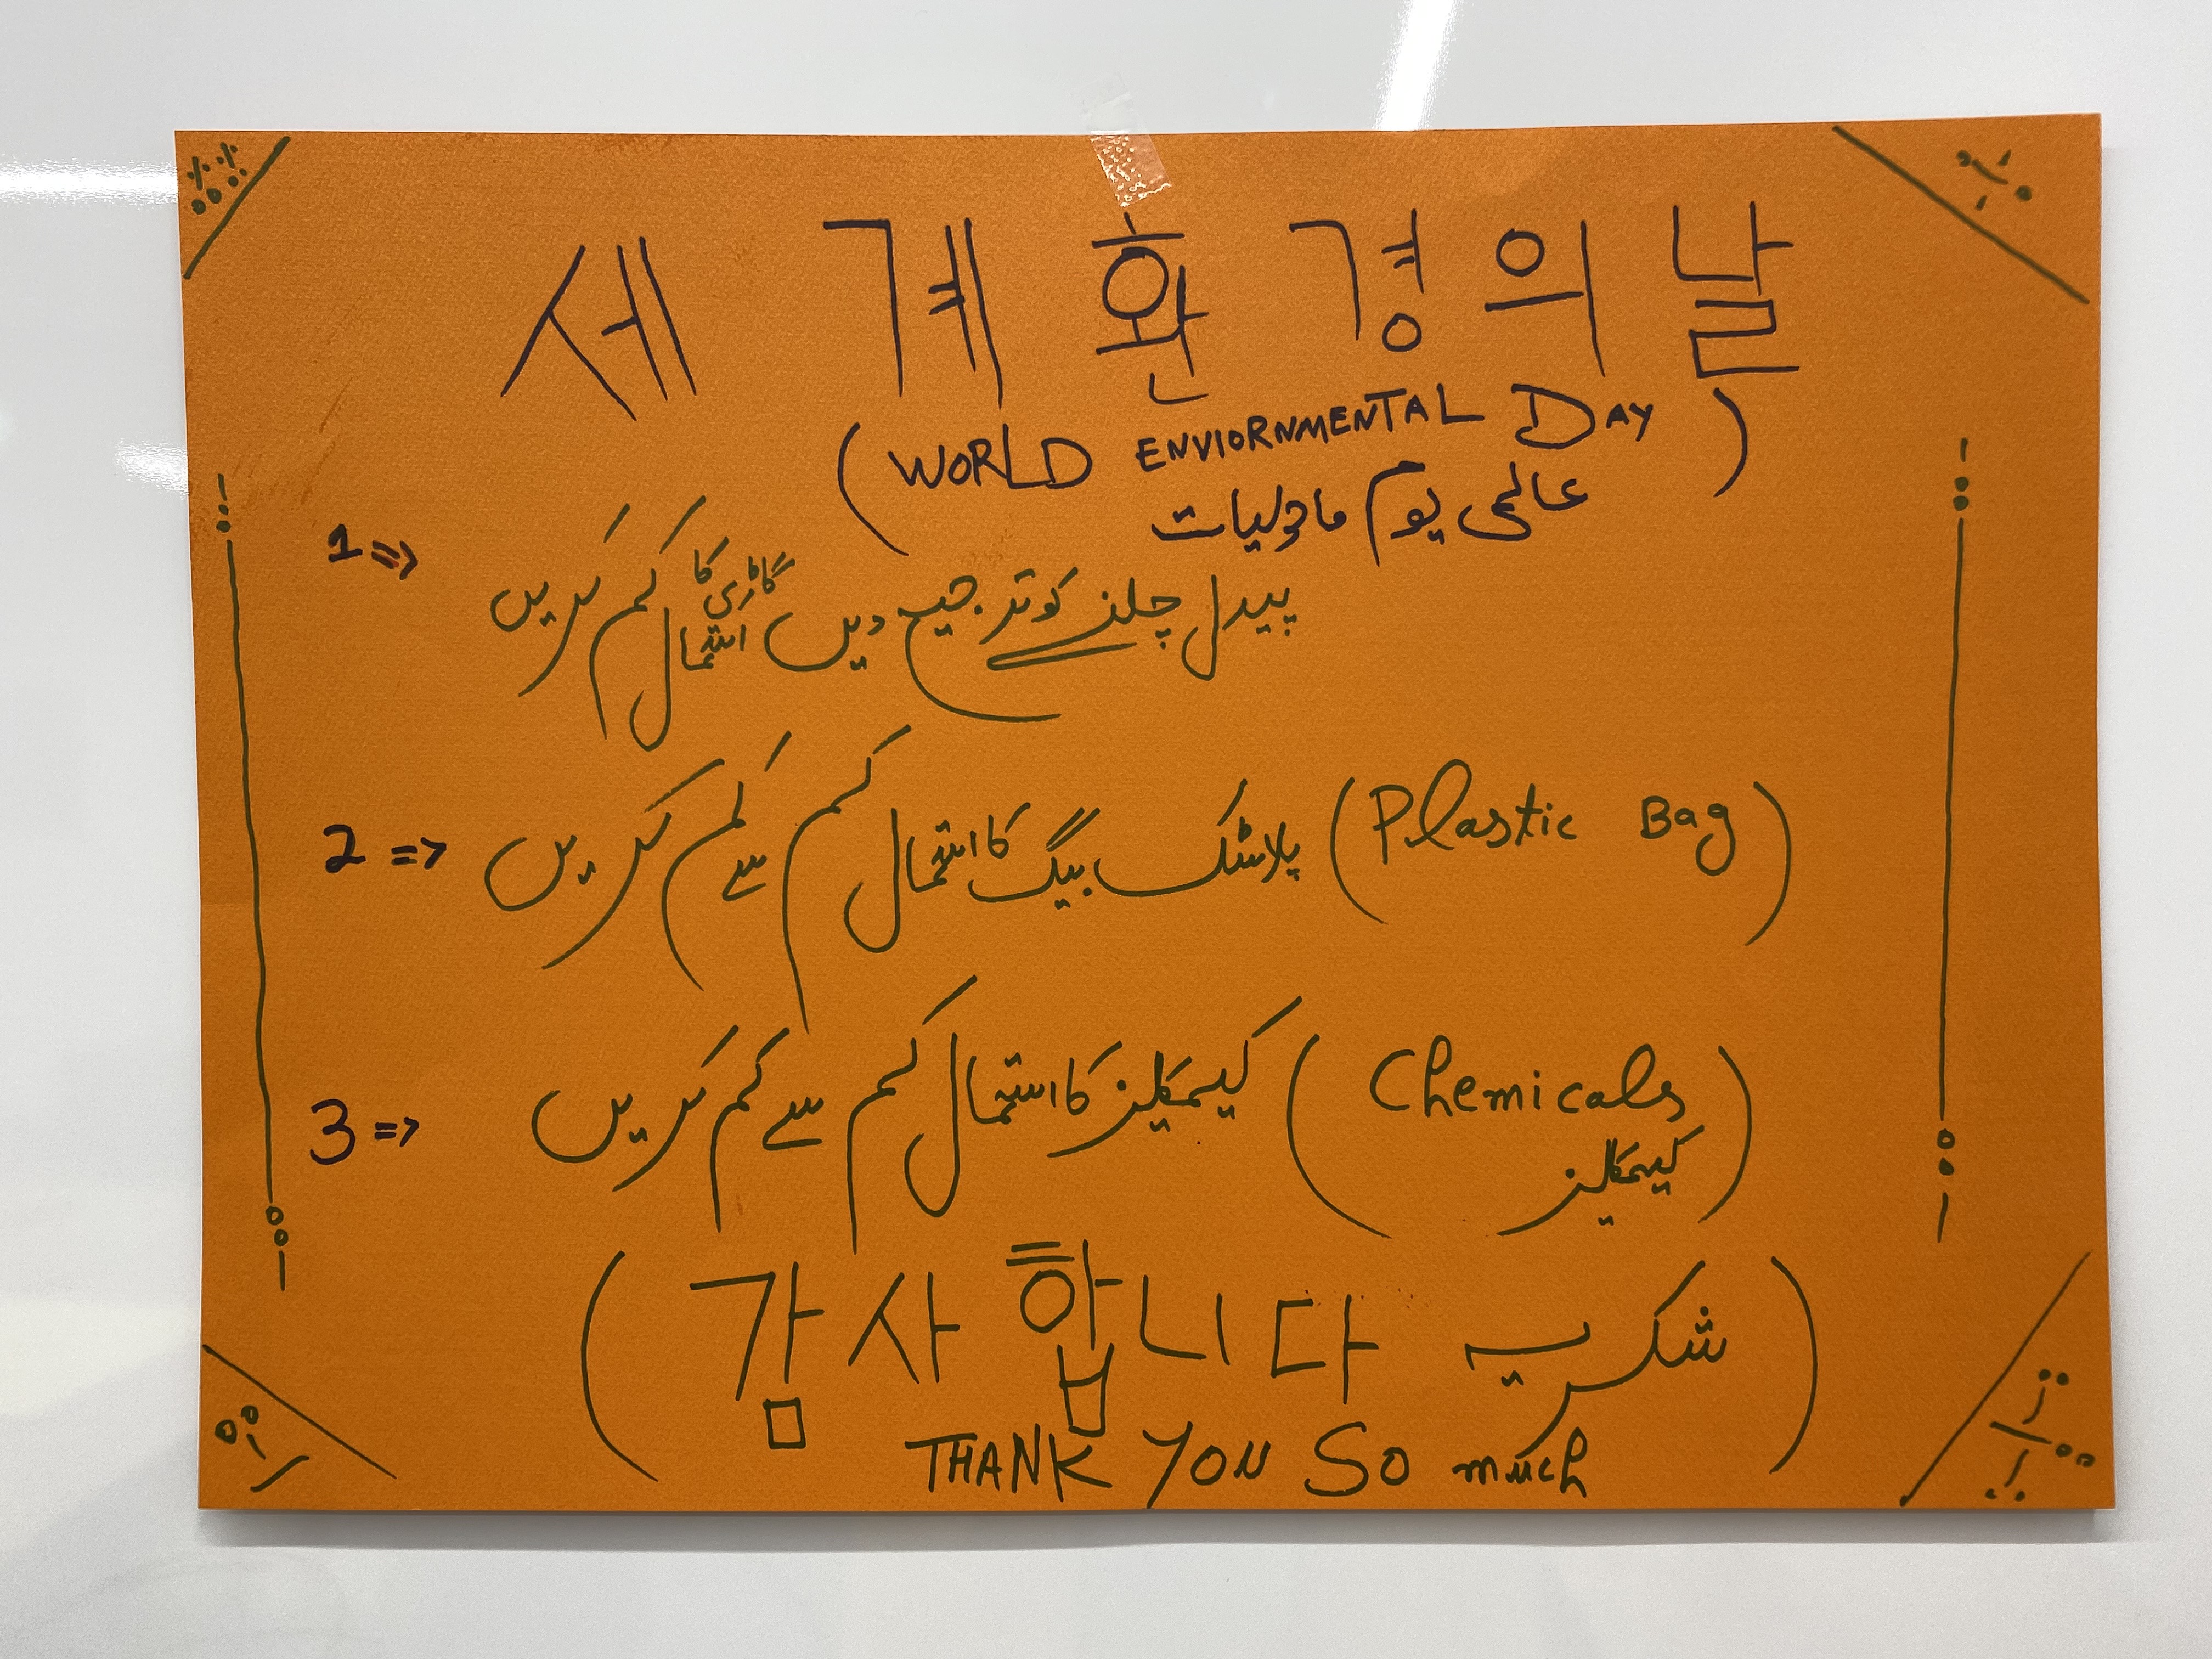 세계환경의날
(WORLD ENVIORNMENTAL DAY)
عالمی یوم ماحولیات
1 => پیدل چلنے کو ترجیح دیں گاڑی کا استمال کم کریں
2 => (Plastic Bag) پلاسٹک بیگ کا استمال کم سے کم کریں
3 => (Chemicals کیمکلیز) کیمکلیز کا استمال کم سے کم کریں
(감사합니다 شکریہ)
THANK YOU SO much